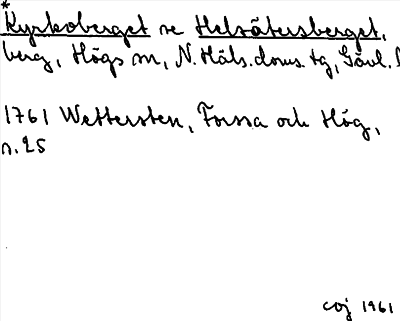 *Kyrkoberget se Helsätersberget,
berg, Högs sn, N. Häls. doms. tg, Gävl. l
1761 Wettersten, Forssa och Hög,
s. 25
coj 1961